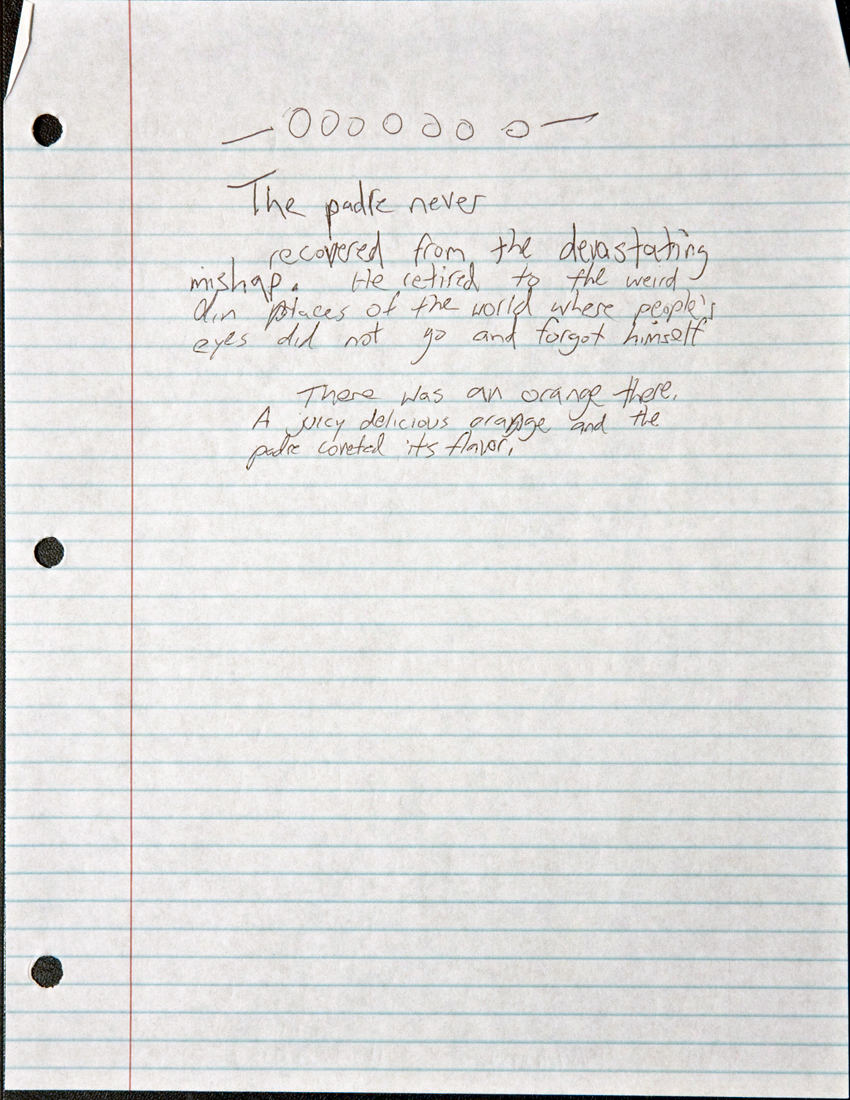 — 000 0 00 0 —
The padre never
recovered from the devastating
mishap. He retired to the weird
dim places of the world where people's
eyes did not go and forgot himself
There was an orange there.
A juicy delicious orange and the
padre coveted its flavor.